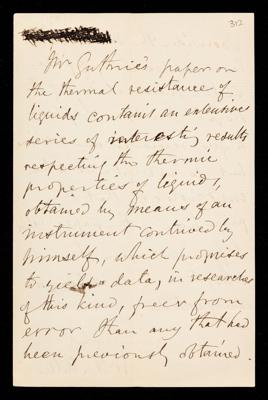 312
Mr Guthrie's paper on
the thermal resistance of
liquids contains an extensive
series of interesting results
respecting the thermic
properties of liquids,
obtained by means of an
instrument contrived by
himself, which promises
to yield data, in researches
of this kind, freer from
error than any that had
been previously obtained.